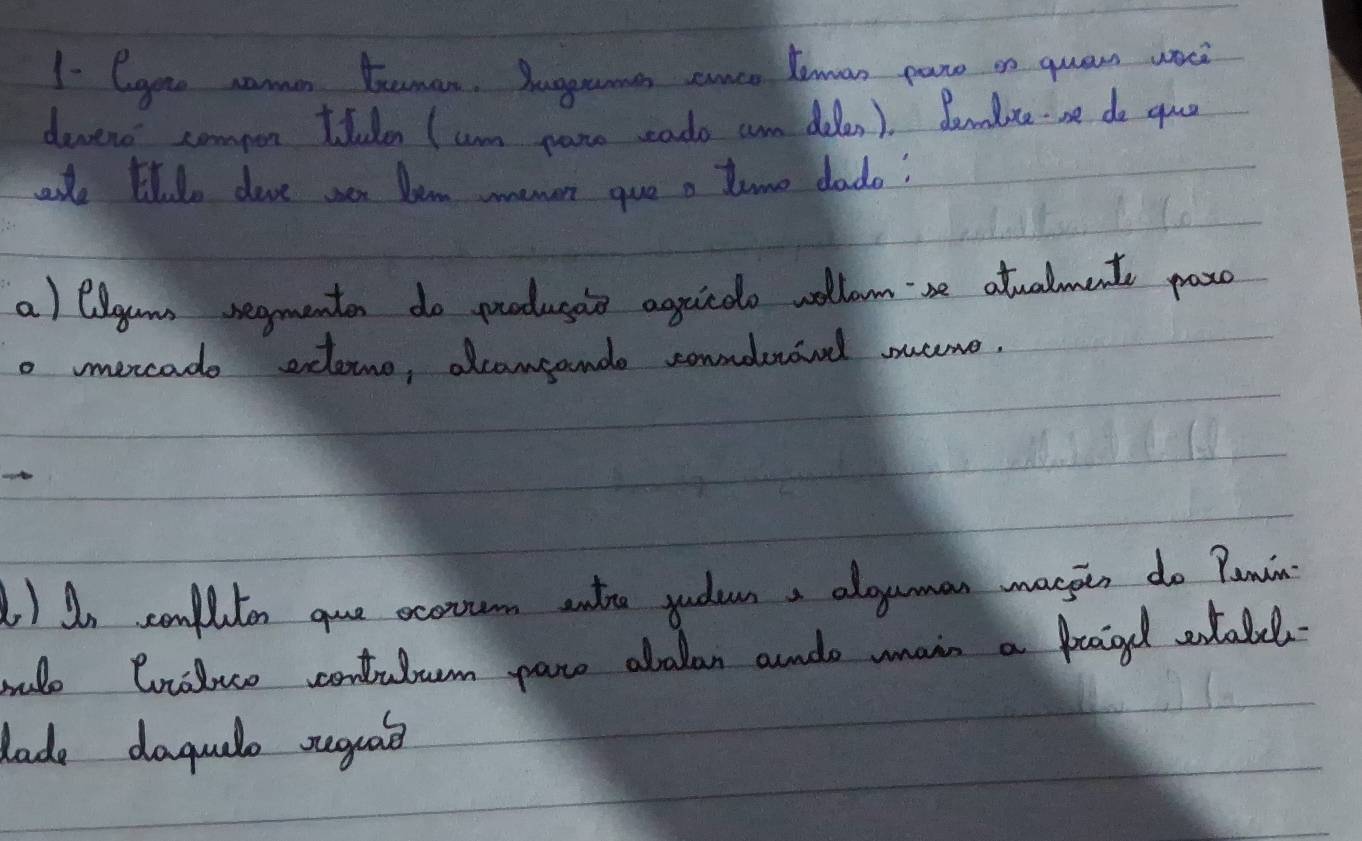 1- Agora vamos treinar. Sugerimos cinco temas para os quais você
deverá compor títulos (um para cada um deles). Lembre-se de que
este título deve ser bem menor que o tema dado:
a) Alguns segmentos da produção agrícola voltam-se atualmente para
o mercado externo, alcançando considerável sucesso.
→
b) Os conflitos que ocorrem entre judeus e algumas nações da Penín-
sula Arábica contribuem para abalar ainda mais a frágil estabili-
dade daquela região